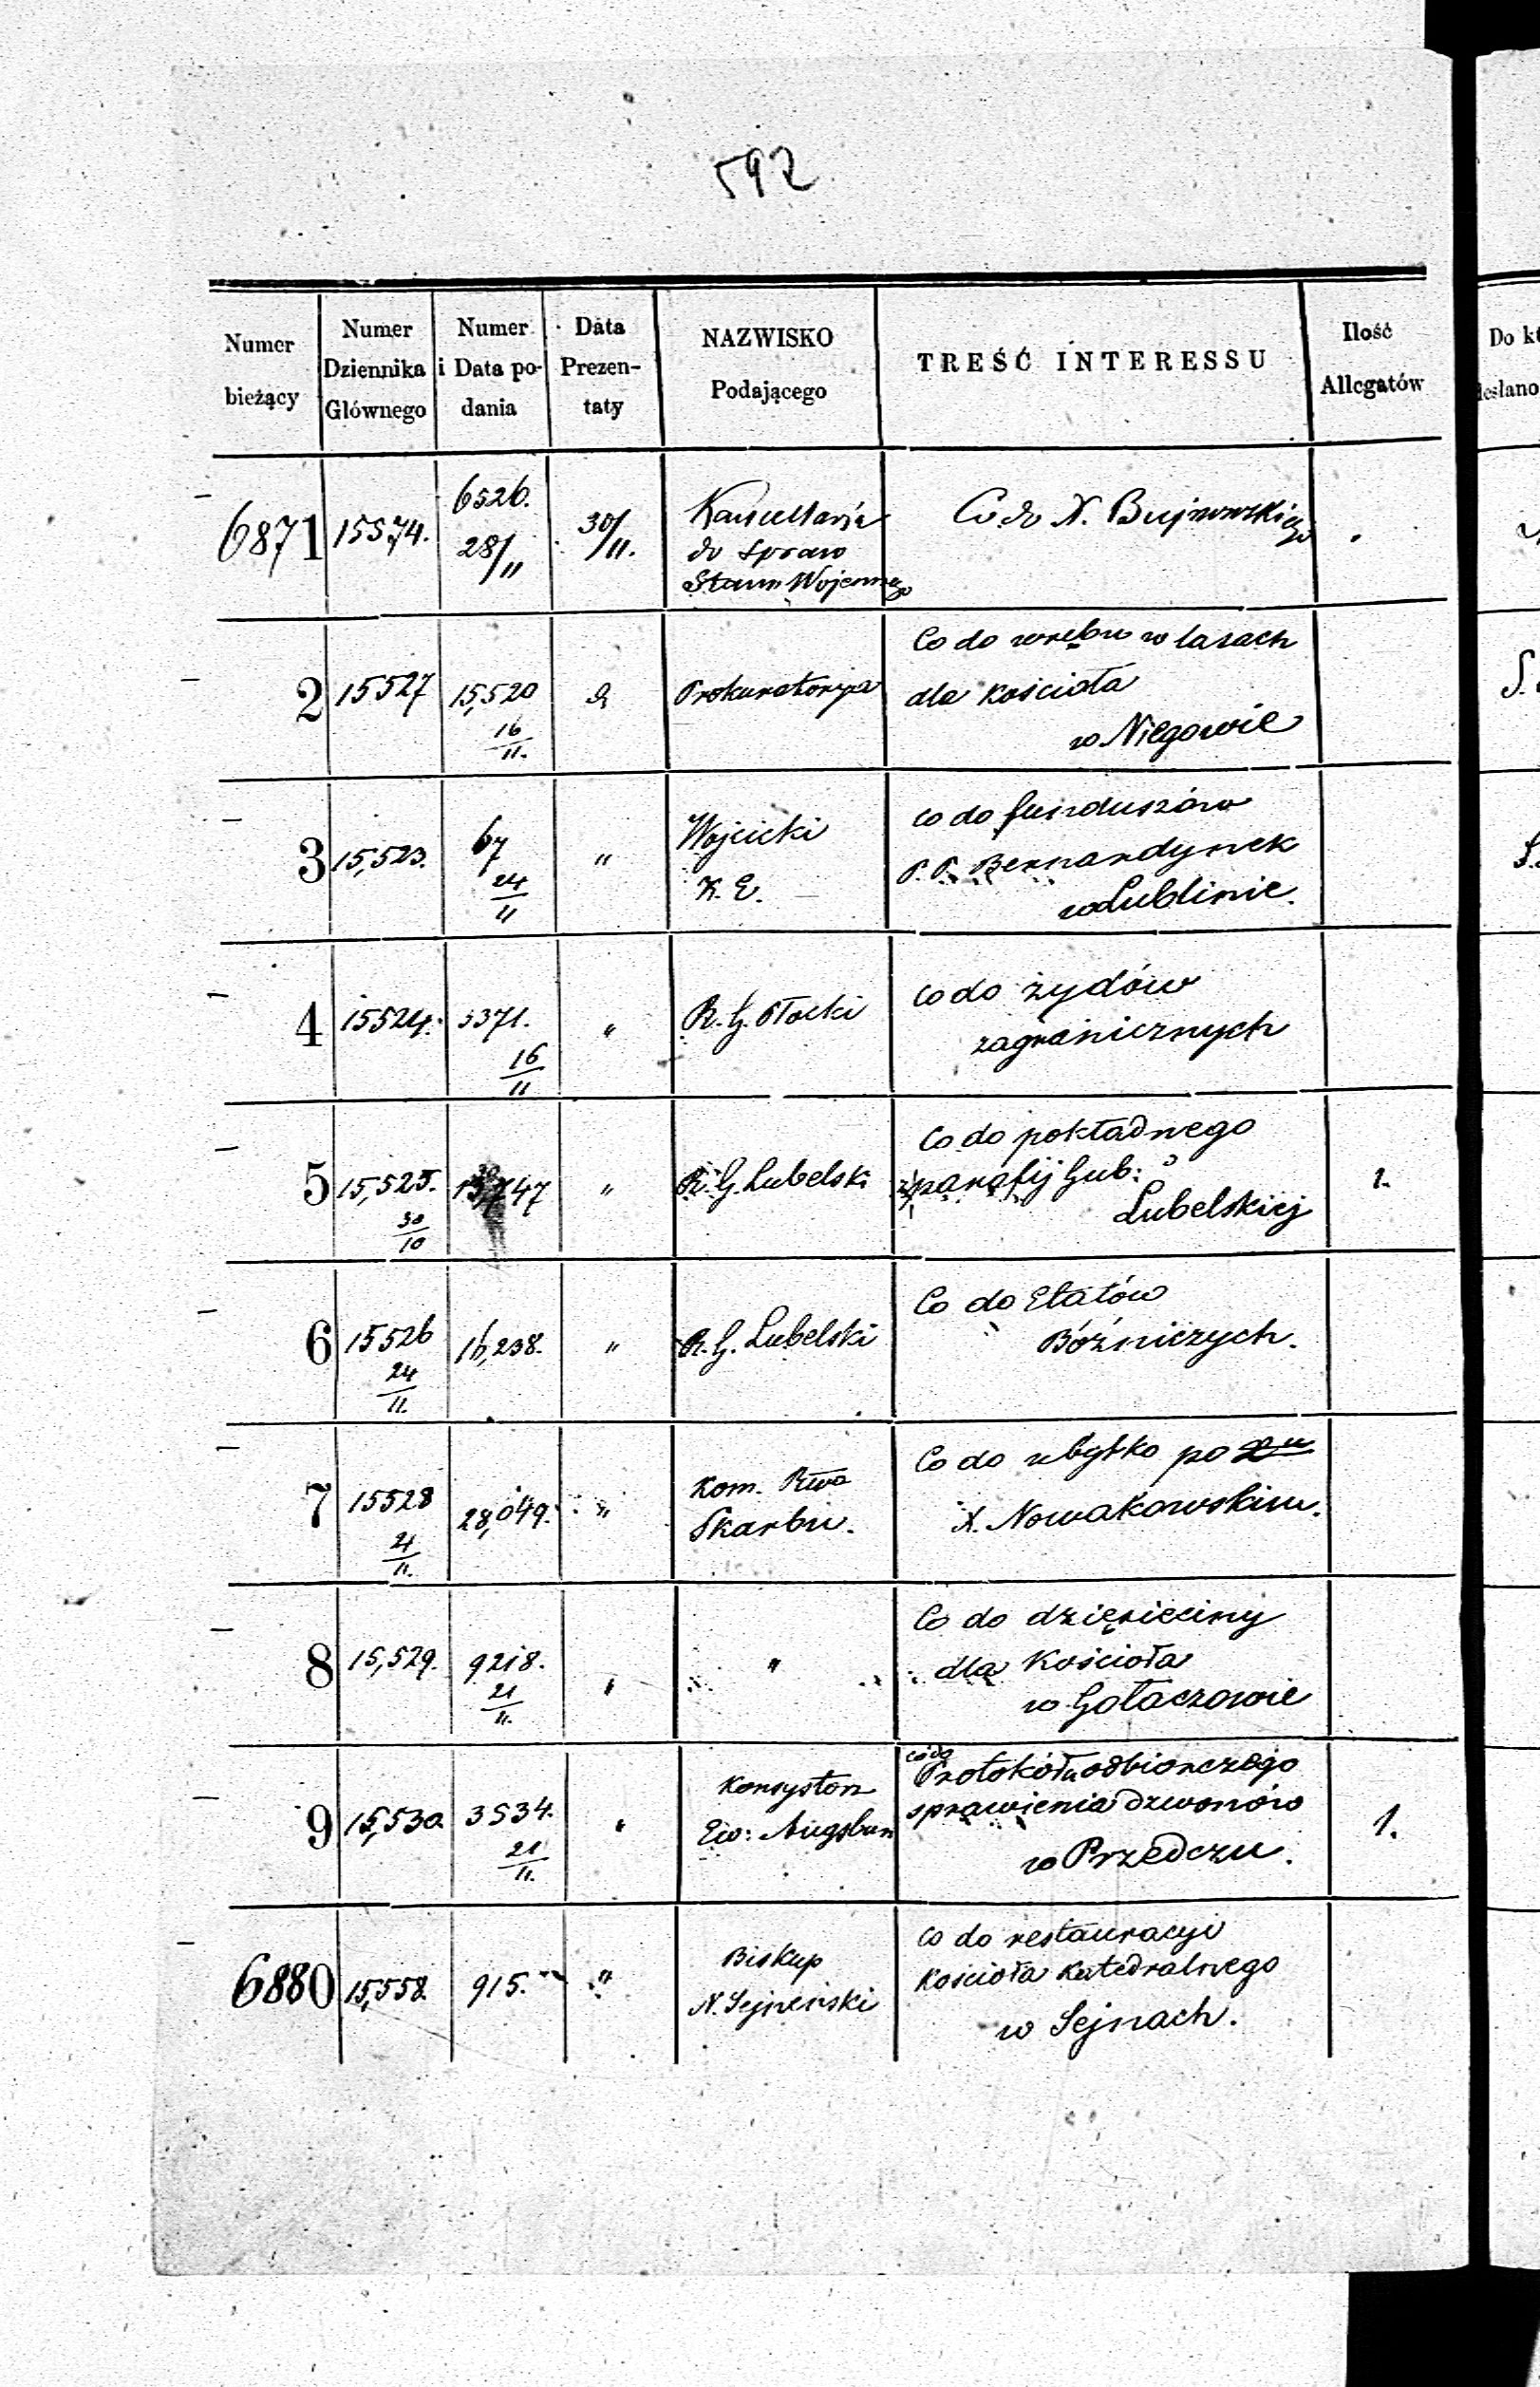 592
Numer bieżący | Numer Dziennika Głównego | Numer i Data podania | Data Prezentaty | NAZWISKO Podającego | TREŚĆ INTERESSU | Ilość Allegatów
6871 | 15574. | 6526. 28/11 | 30/11. | Kancellarja do Spraw Stanu Wojennego | Co do X. Bujnowskiego
2 | 15527 | 15,520 16/11. | Prokuratorya | Co do wrębu w lasach dla Kościoła w Niegowie
3 | 15,523. | 67 24/11 | " | Wojcicki K. E. | co do funduszów P. P. Bernardynek w Lublinie.
4 | 15524. | 3371. 16/11 | " | R. G. Płocki | co do żydów zagranicznych
5 | 15,525. 30/10 | " | R. G. Lubelski | Co do pokładnego z parafij Gub: Lubelskiej | 1.
6 | 15526 24/11. | 16,238. | " | R. G. Lubelski | Co do Etatów Bóżniczych.
7 | 15528 21/11. | 28,049. | " | Kom. Rwa Skarbu. | Co do ubytko po X. Nowakowskim.
8 | 15,529. | 9218. 21/11. | " | " | Co do dziesięciny dla Kościoła w Gołaczowie
9 | 15,530. | 3534. 21/11. | " | Konsystorz Ew: Augsbur | co do Protokółu odbiorczego sprawienia dzwonów w Przedczu. | 1.
6880 | 15,558. | 915. | " | Biskup N. Sejneński | co do restauracyi Kościoła Katedralnego w Sejnach.
Do kt